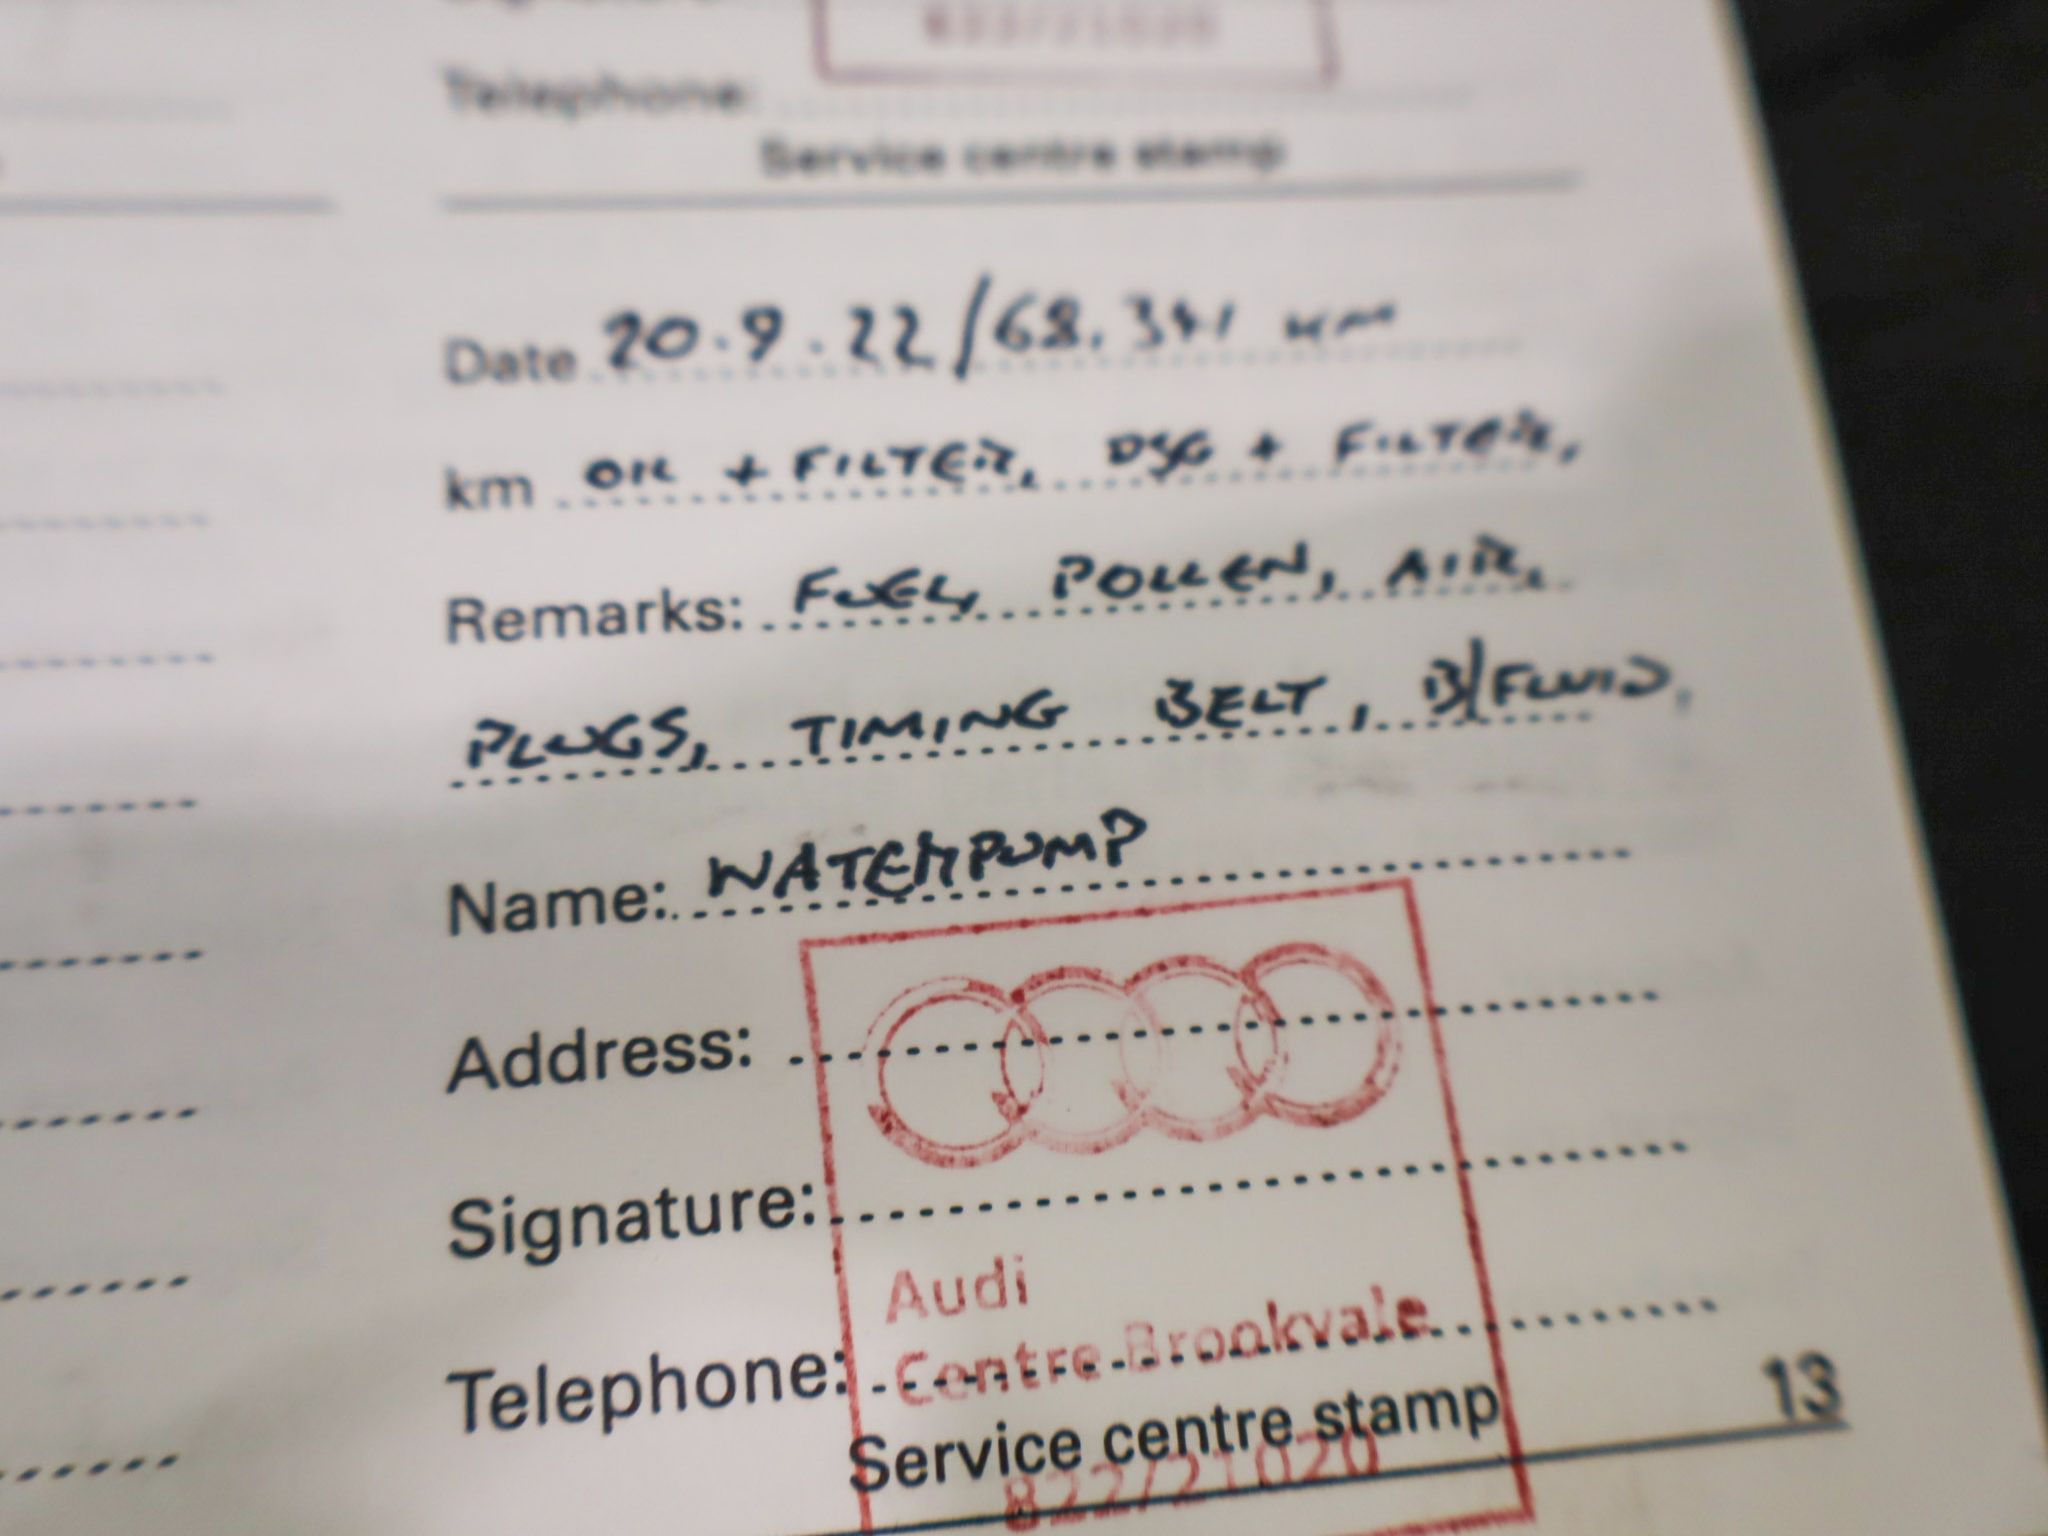 822/21020
Telephone:
Service centre stamp
Date 20.9.22/68.341 KM
km OIL + FILTER, DSG + FILTER,
Remarks: FUEL, POLLEN, AIR,
PLUGS, TIMING BELT, B/FLUID,
Name: WATERPUMP
Address:
Signature:
Audi
Telephone: Centre Brookvale
Service centre stamp 13
822/21020